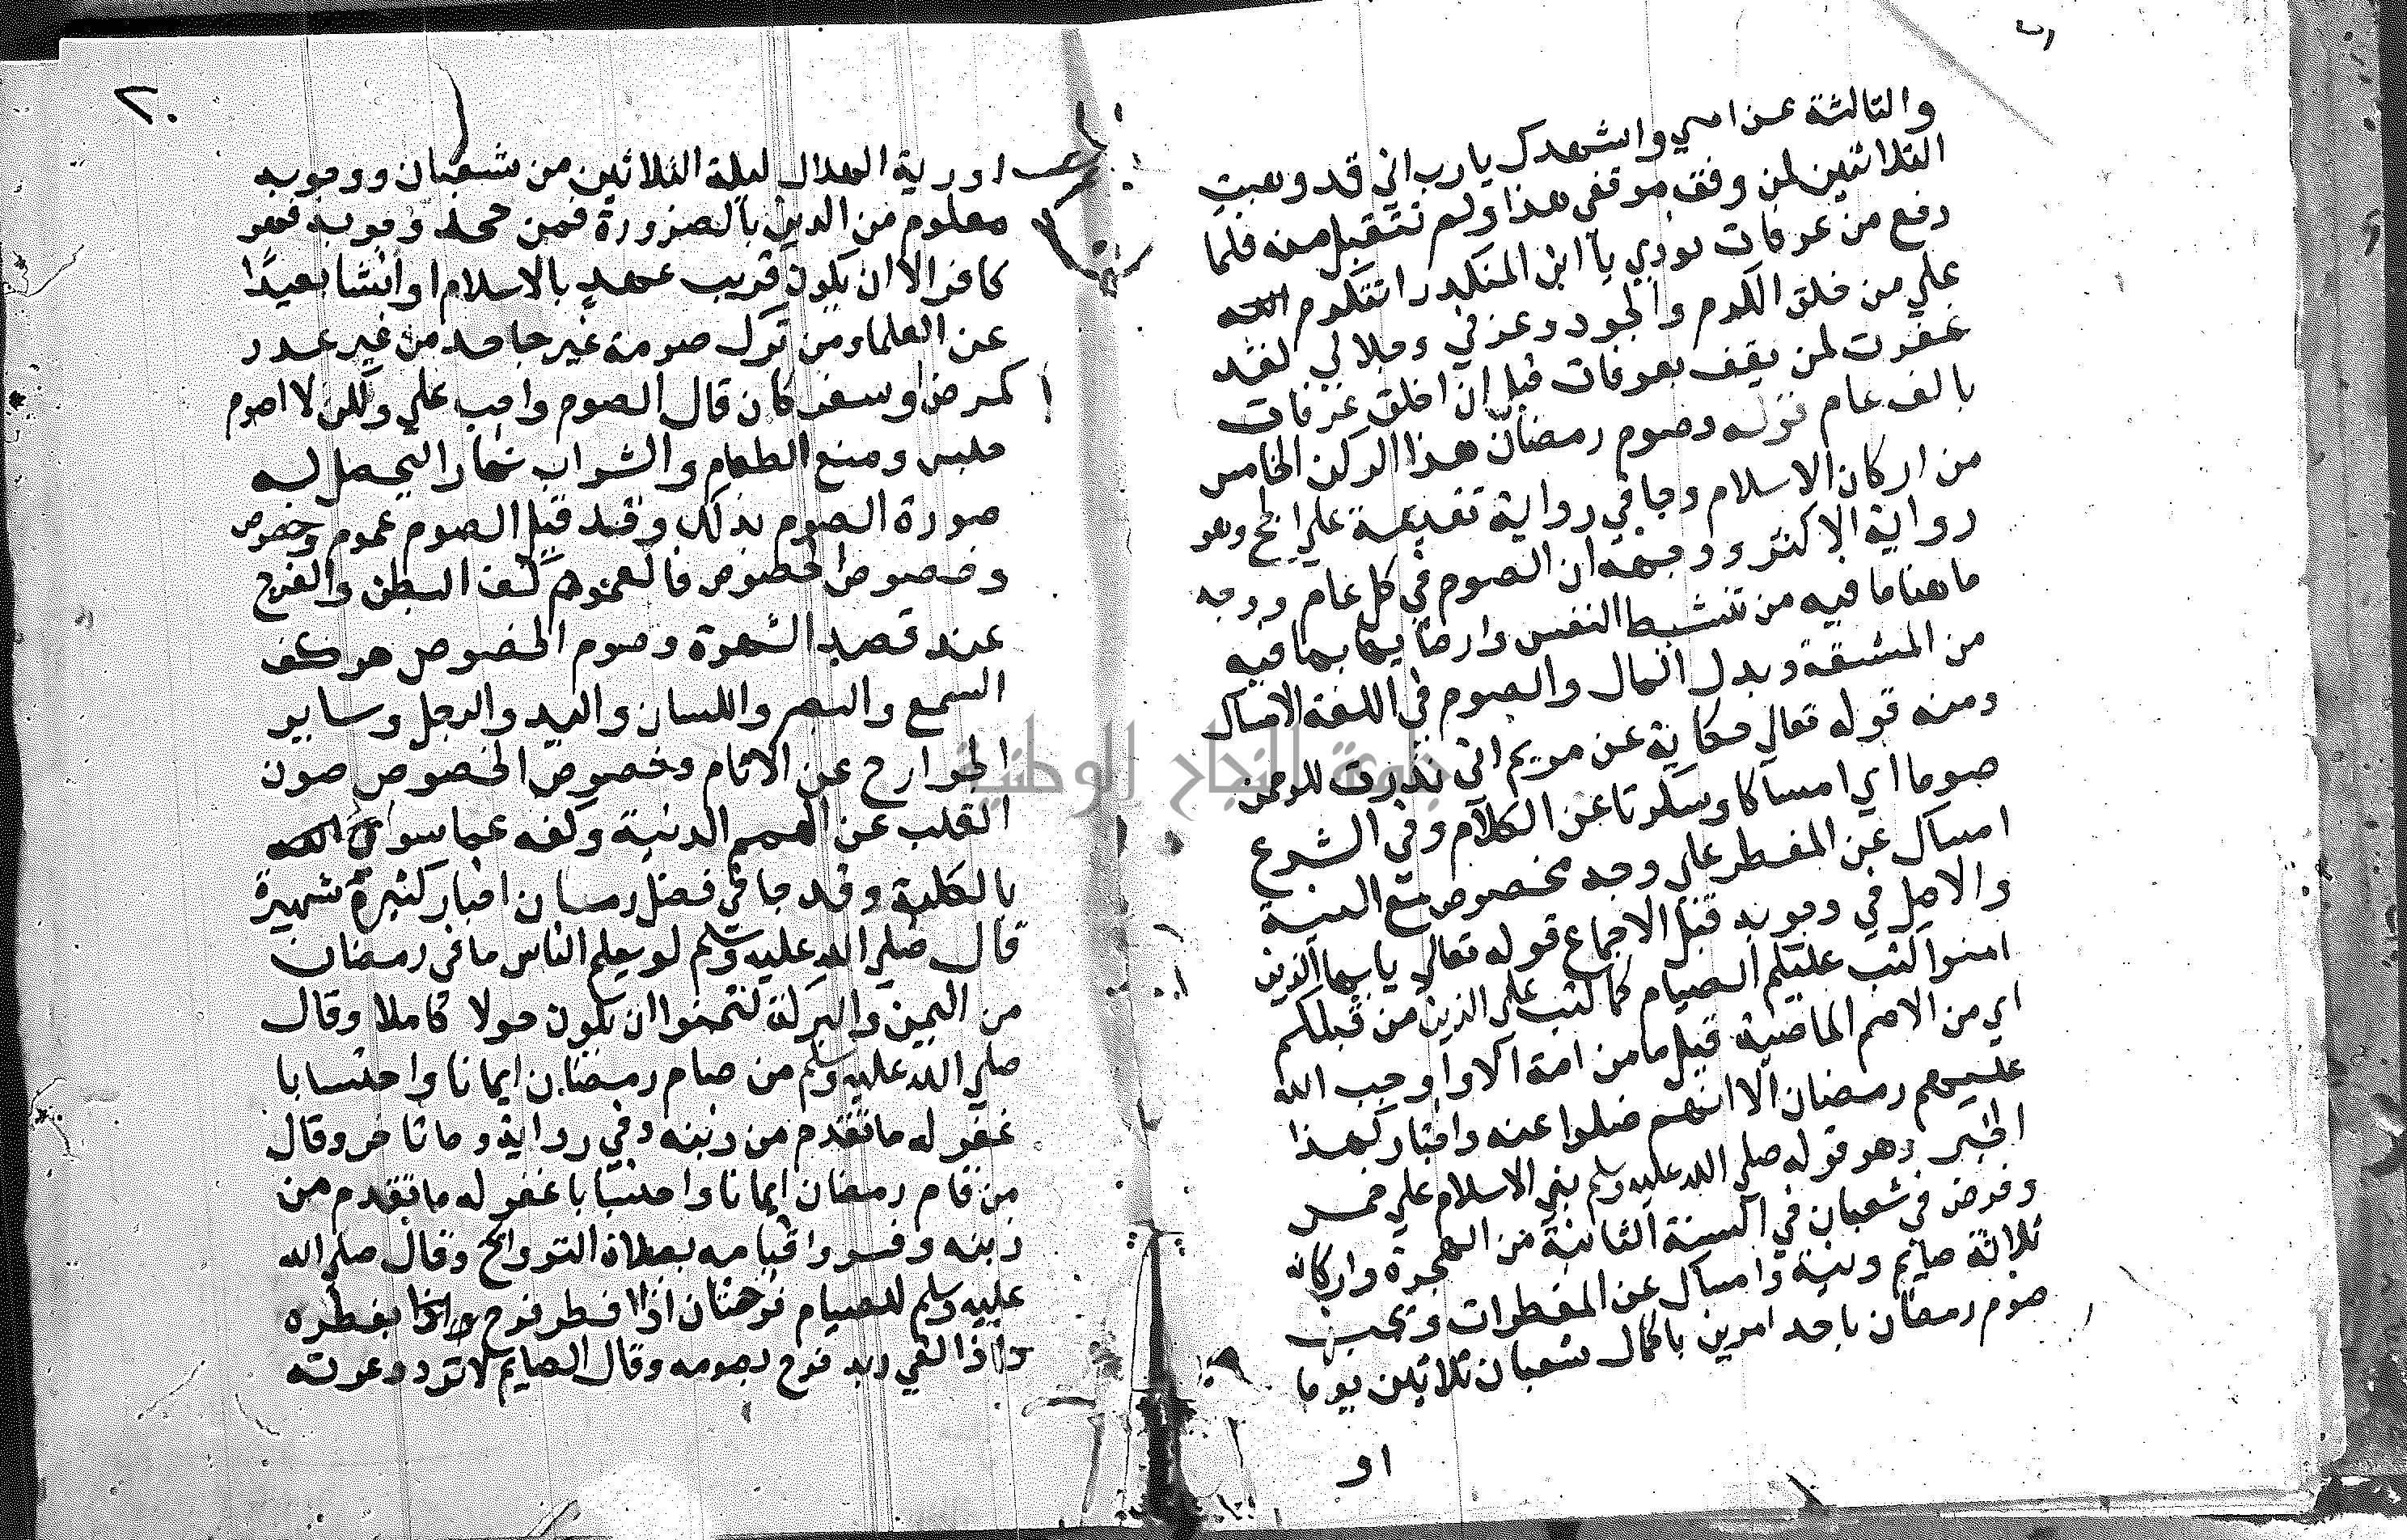 والثالثة عن امي واشهدك يارب اني قد وهبت
الثلاثين لمن وقف موقفي هذا ولم تتقبل منه فلما
دفع من عرفات نودي يا ابن المنكدر اتتكرم
علي من خلق الكرم والجود وعزتي وجلالي لقد
غفرت لمن يقف بعرفات قبل ان اخلق عرفات
بالف عام قوله وصوم رمضان هذا الركن الخامس
من اركان الاسلام وجا في رواية تقديمه علي الحج وهو
رواية الاكثر ووجهه ان الصوم في كل عام ووجه
ماهنا ما فيه من تنشيط النفس وارضايها بما فيه
من المشقة وبدل المال والصوم في اللغة الامساك
ومنه قوله تعالي حكاية عن مريم اني نذرت للرحمن
صوما اي امساكا وسكوتا عن الكلام وفي الشرع
امساك عن المفطر علي وجه مخصوص مع النية
والاصل في وجوبه قبل الاجماع قوله تعالي يايها الذين
امنوا كتب عليكم الصيام كما كتب علي الذين من قبلكم
اي من الامم الماضية قيل ما من امة الا واوجب الله
عليهم رمضان الا انهم ضلوا عنه واخبار كهذا
الخبر وهو قوله صلي الله عليه وسلم بني الاسلام علي خمس
وفرض في شعبان في السنة الثانية من الهجرة واركانه
ثلاثة صايم ونية وامساك عن المفطرات ويجب
صوم رمضان باحد امرين باكمال شعبان ثلاثين يوما
او
٢٠
او روية الهلال ليلة الثلاثين من شعبان ووجوبه
معلوم من الدين بالضرورة فمن جحد وجوبه فهو
كافر الا ان يكون قريب عهد بالاسلام او انشا بعيدا
عن العلماء ومن ترك صومه غير جاحد من غير عدر
كمرض او سفر كان قال الصوم واجب علي ولكن لا اصوم
حبس ومنع الطعام والشراب نهارا ليحصل له
صورة الصوم بذلك وقد قيل الصوم عموم وخصوص
وخصوص الخصوص فالعموم كف البطن والفرج
عند قصد الشهوة وصوم الخصوص هو كف
السمع والبصر واللسان واليد والرجل وساير
الجوارح عن الاثام وخصوص الخصوص صون
القلب عن الهمم الدنية وكفه عما سوي الله
بالكلية وقد جا في فضل رمضان اخبار كثيرة شهيرة
قال صلي الله عليه وسلم لو يعلم الناس ما في رمضان
من اليمن والبركة لتمنوا ان يكون حولا كاملا وقال
صلي الله عليه وسلم من صام رمضان ايمانا واحتسابا
غفر له ما تقدم من ذنبه وفي رواية وما تاخر وقال
من قام رمضان ايمانا واحتسابا غفر له ما تقدم من
ذنبه وفسروا قيامه بصلاة التراويح وقال صلي الله
عليه وسلم للصيام فرحتان اذا افطر فرح بفطره
واذا لقي ربه فرح بصومه وقال الصايم لا ترد دعوته
جامعة النجاح الوطنية